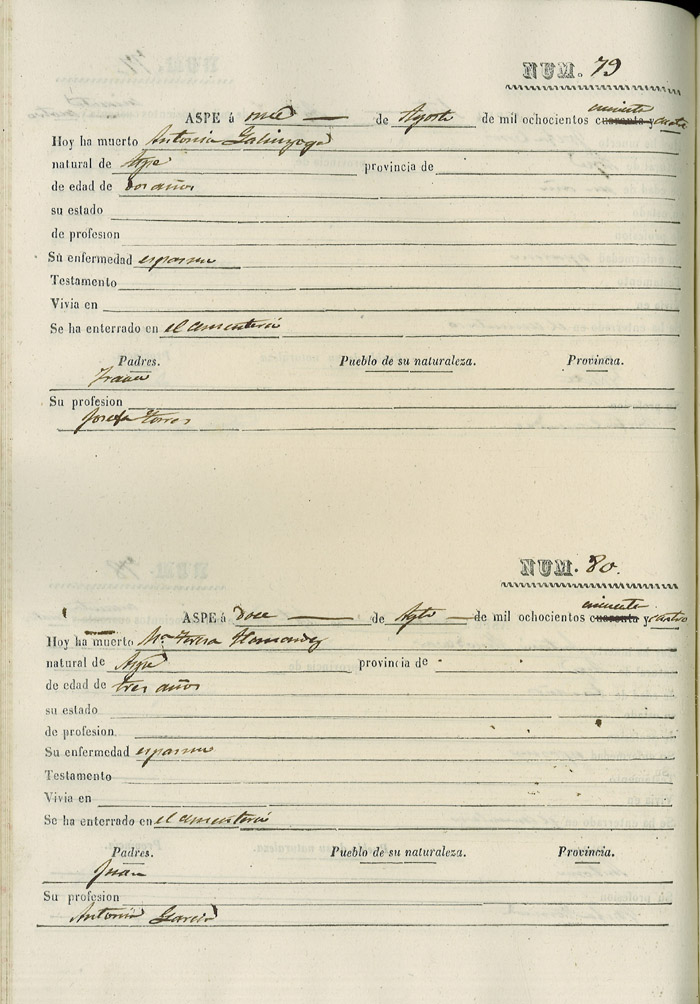 NUM. 79
cincuenta
ASPE á once de Agosto de mil ochocientos cuarenta y cuatro
Hoy ha muerto Antonia Galinzoga
natural de Aspe provincia de
de edad de dos años
su estado
de profesion
Su enfermedad espasmo
Testamento
Vivia en
Se ha enterrado en el cementerio
Padres. Pueblo de su naturaleza. Provincia.
Su profesion
Josefa Torres
NUM. 80.
cincuenta
ASPE á Doce de Agto de mil ochocientos cuarenta y cuatro
Hoy ha muerto Mª Teresa Hernandez
natural de Aspe provincia de
de edad de tres años
su estado
de profesion
Su enfermedad espasmo
Testamento
Vivia en
Se ha enterrado en el cementerio
Padres. Pueblo de su naturaleza. Provincia.
Juan
Su profesion
Antonia Garcia